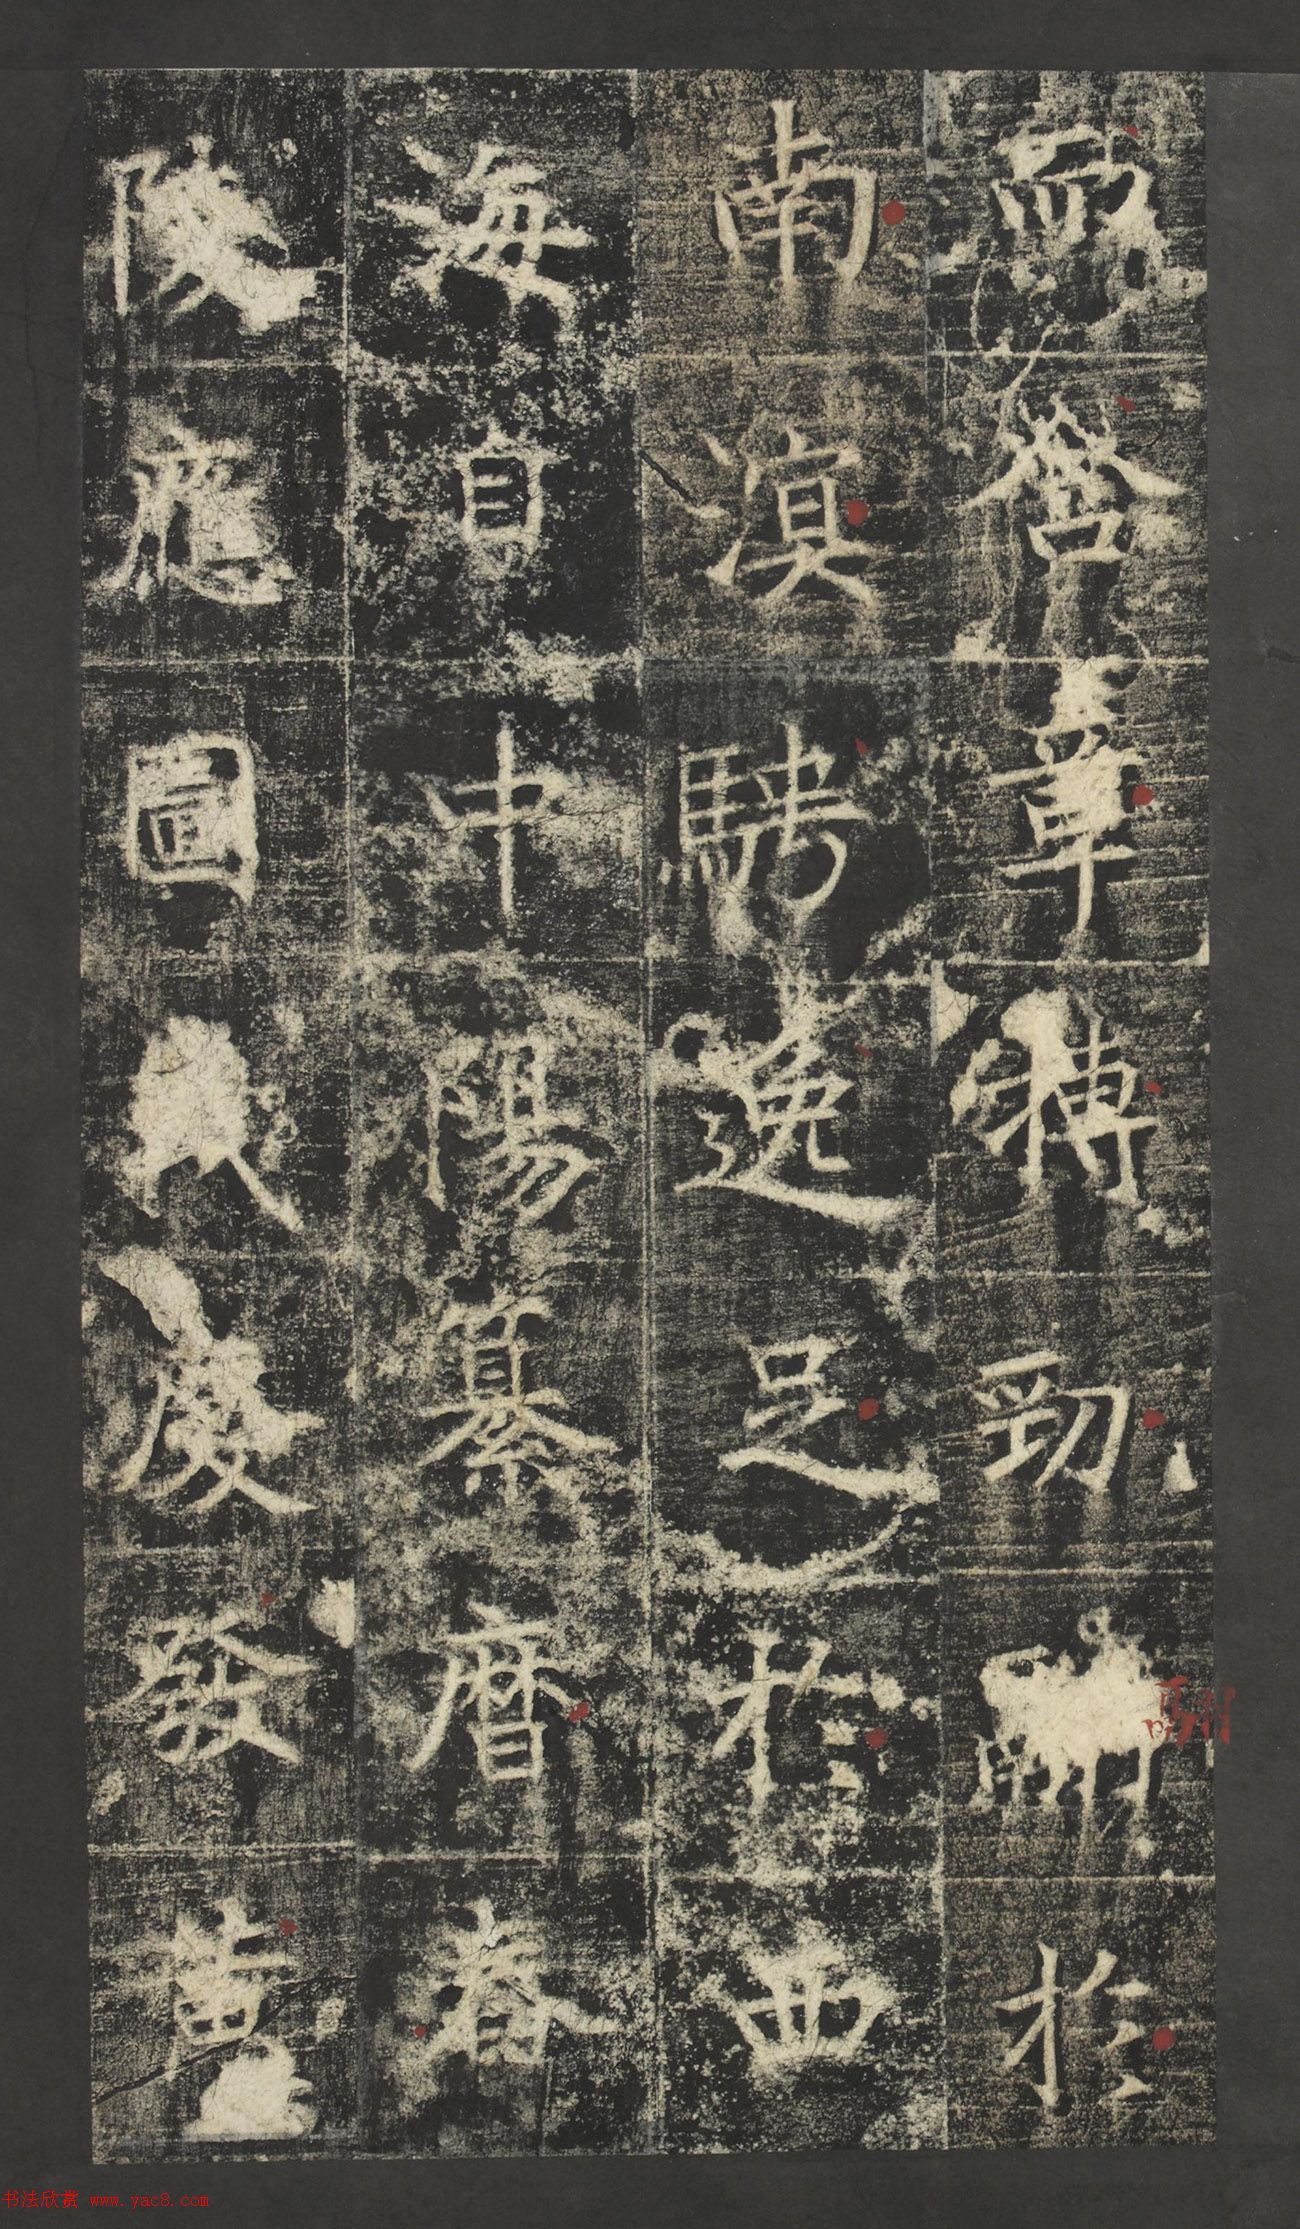 而章搏勁翮於
南溟騁逸足於西
海自中陽纂曆舂
陵應圖慶發黃
书法欣赏 www.yac8.com